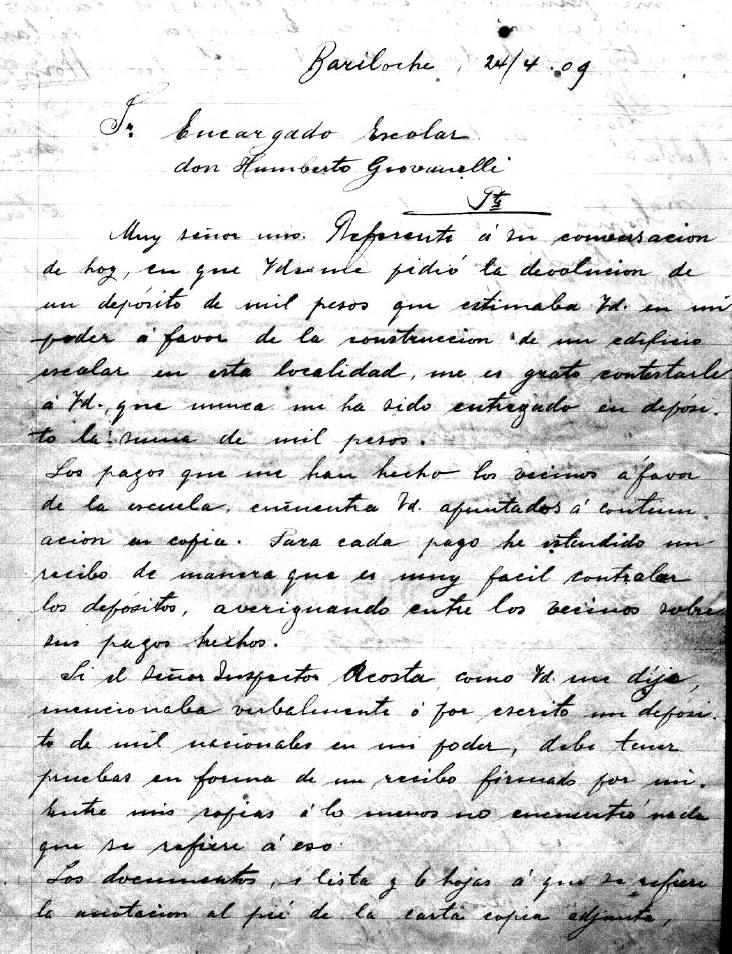 Bariloche, 24/4.09
Sr. Encargado Escolar
don Humberto Giovanelli
Pte
Muy señor mio. Referente á su conversacion
de hoy, en que Vd. me pidió la devolucion de
un depósito de mil pesos que estimaba Vd. en mi
poder á favor de la construccion de un edificio
escolar en esta localidad, me es grato contestarle
á Vd., que nunca me ha sido entregado en depósi-
to la suma de mil pesos.
Los pagos que me han hecho los vecinos á favor
de la escuela, encuentra Vd. apuntados á continu-
acion en copia. Para cada pago he estendido un
recibo de manera que es muy facil controlar
los depósitos, averiguando entre los vecinos sobre
sus pagos hechos.
Si el señor Inspector Acosta, como Vd. me dije,
mencionaba verbalmente ó por escrito un deposi-
to de mil nacionales en mi poder, debe tener
pruebas en forma de un recibo firmado por mi.
Entre mis copias á lo menos no encuentro nada
que se refiere á eso.
Los documentos, 1 lista y 6 hojas á que se refiere
la anotacion al pié de la carta copia adjunta,